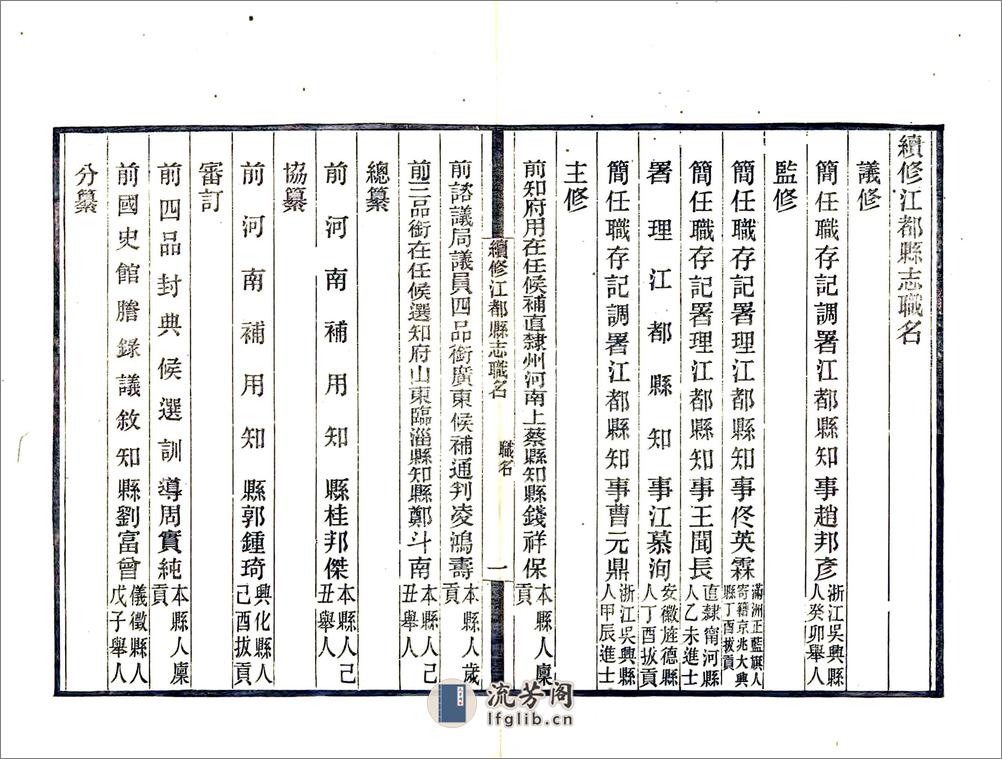 續修江都縣志職名
議修
簡任職存記調署江都縣知事趙邦彥浙江吳興縣人癸卯舉人
監修
簡任職存記署理江都縣知事佟英霖滿洲正藍旗人寄籍京兆大興縣丁酉拔貢
簡任職存記署理江都縣知事王聞長直隸甯河縣人乙未進士
署理江都縣知事江慕洵安徽旌德縣人丁酉拔貢
簡任職存記調署江都縣知事曹元鼎浙江吳興縣人甲辰進士
主修
前知府用在任候補直隸州河南上蔡縣知縣錢祥保本縣人廩貢
續修江都縣志職名 職名 一
前諮議局議員四品銜廣東候補通判凌鴻壽本縣人歲貢
前三品銜在任候選知府山東臨淄縣知縣鄭斗南本縣人己丑舉人
總纂
前河南補用知縣桂邦傑本縣人己丑舉人
協纂
前河南補用知縣郭鍾琦興化縣人己酉拔貢
審訂
前四品封典候選訓導周實純本縣人廩貢
前國史館謄錄議敘知縣劉富曾儀徵縣人戊子舉人
分纂
流芳阁
lfglib.cn